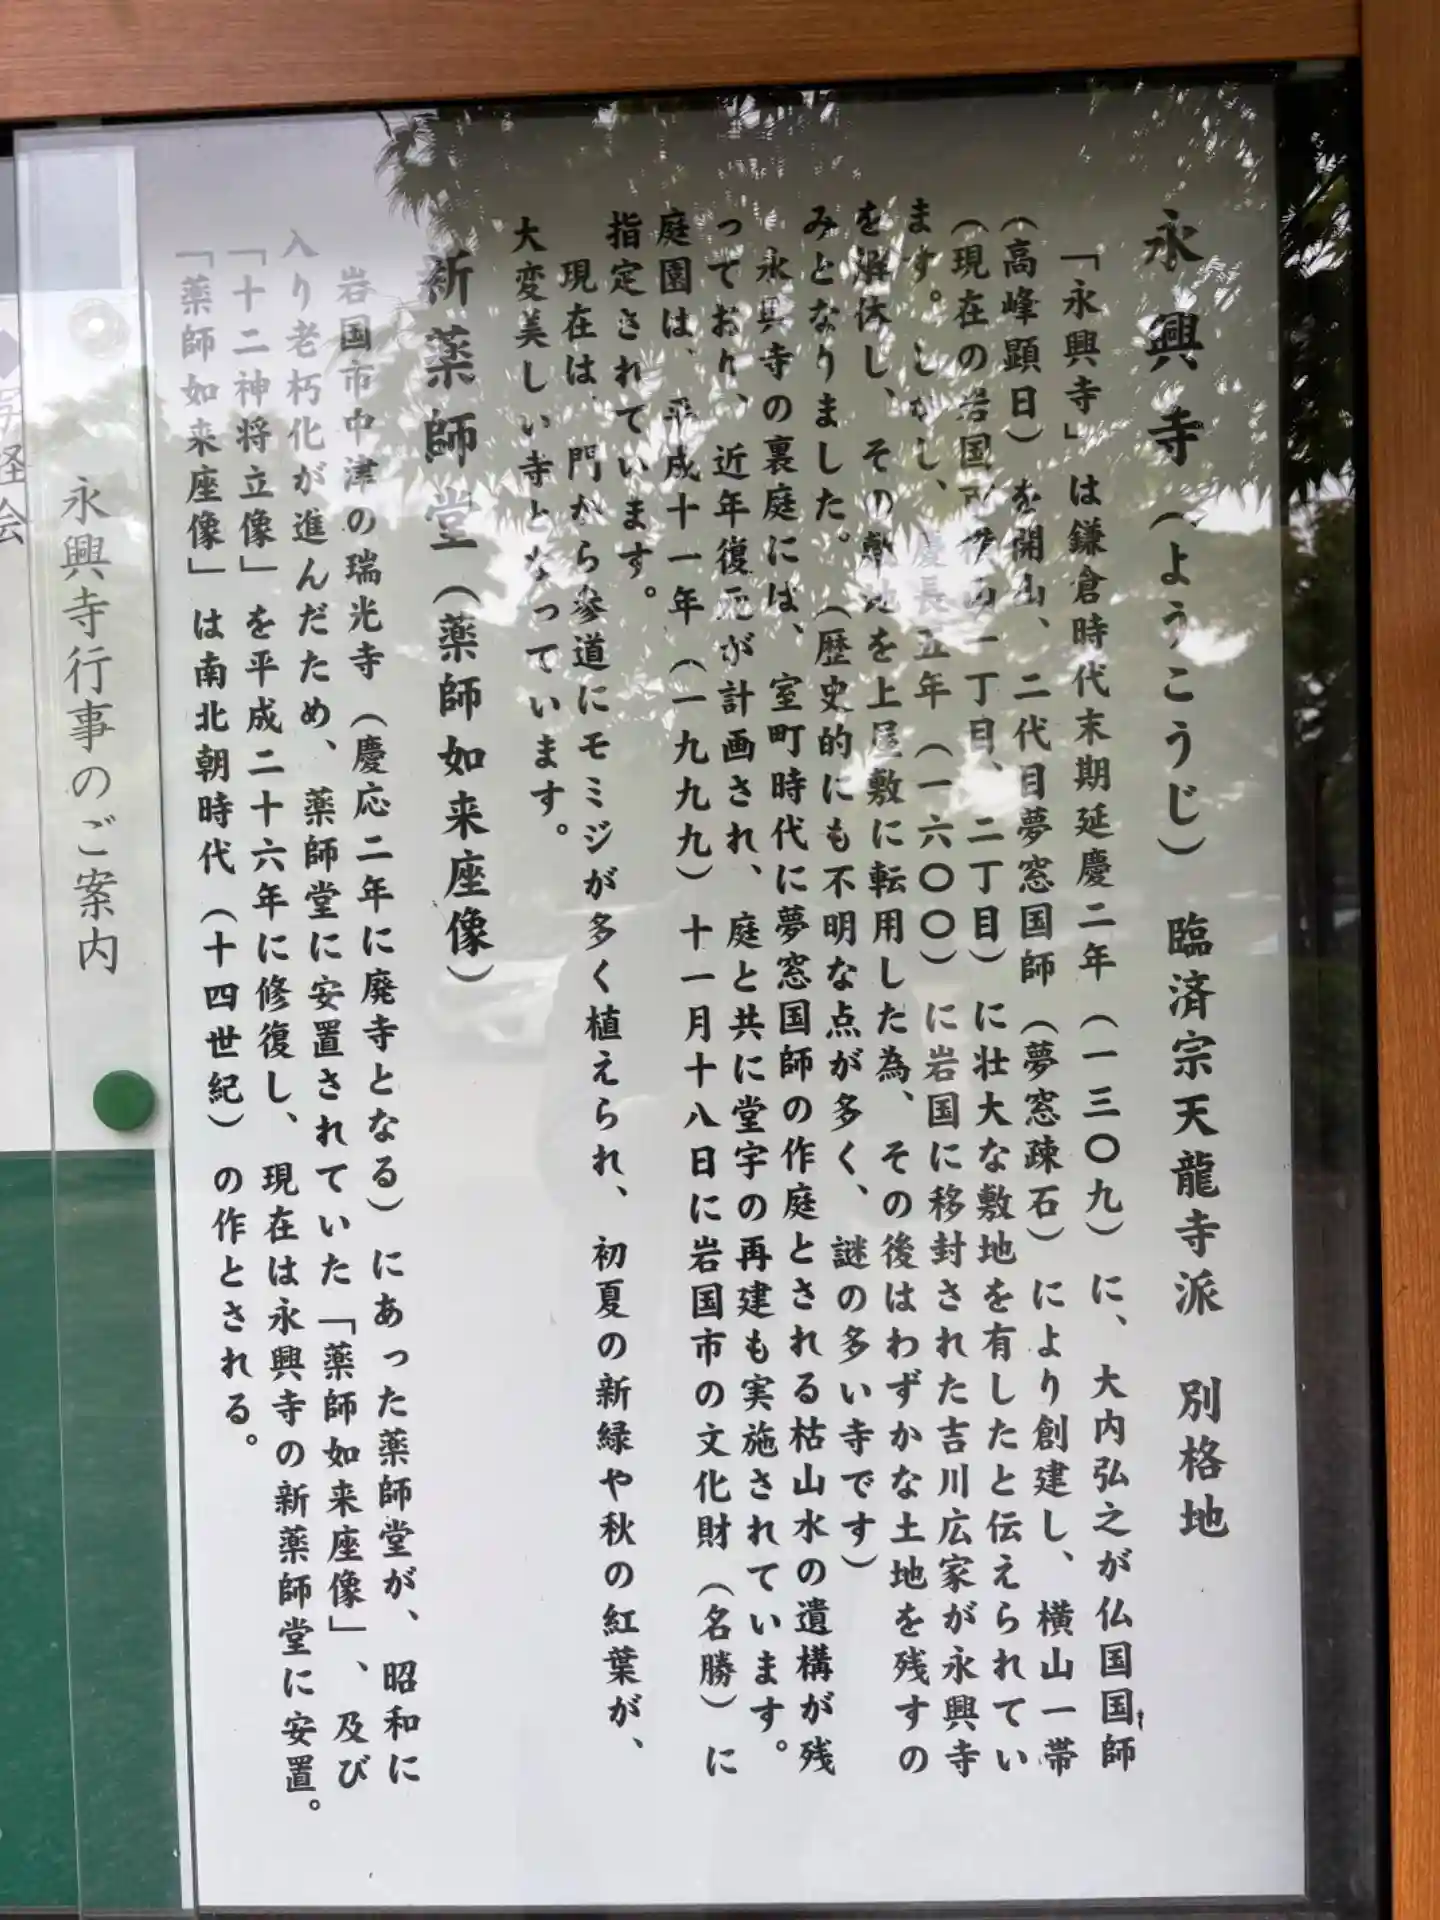 永興寺（ようこうじ） 臨済宗天龍寺派 別格地
「永興寺」は鎌倉時代末期延慶二年（一三〇九）に、大内弘之が仏国国師
（高峰顕日）を開山、二代目夢窓国師（夢窓疎石）により創建し、横山一帯
（現在の岩国市横山一丁目、二丁目）に壮大な敷地を有したと伝えられてい
ます。しかし、慶長五年（一六〇〇）に岩国に移封された吉川広家が永興寺
を解体し、その敷地を上屋敷に転用した為、その後はわずかな土地を残すの
みとなりました。（歴史的にも不明な点が多く、謎の多い寺です）
永興寺の裏庭には、室町時代に夢窓国師の作庭とされる枯山水の遺構が残
っており、近年復元が計画され、庭と共に堂宇の再建も実施されています。
庭園は、平成十一年（一九九九）十一月十八日に岩国市の文化財（名勝）に
指定されています。
現在は、門から参道にモミジが多く植えられ、初夏の新緑や秋の紅葉が、
大変美しい寺となっています。
新薬師堂（薬師如来座像）
岩国市中津の瑞光寺（慶応二年に廃寺となる）にあった薬師堂が、昭和に
入り老朽化が進んだため、薬師堂に安置されていた「薬師如来座像」、及び
「十二神将立像」を平成二十六年に修復し、現在は永興寺の新薬師堂に安置。
「薬師如来座像」は南北朝時代（十四世紀）の作とされる。
永興寺行事のご案内
◆写経会